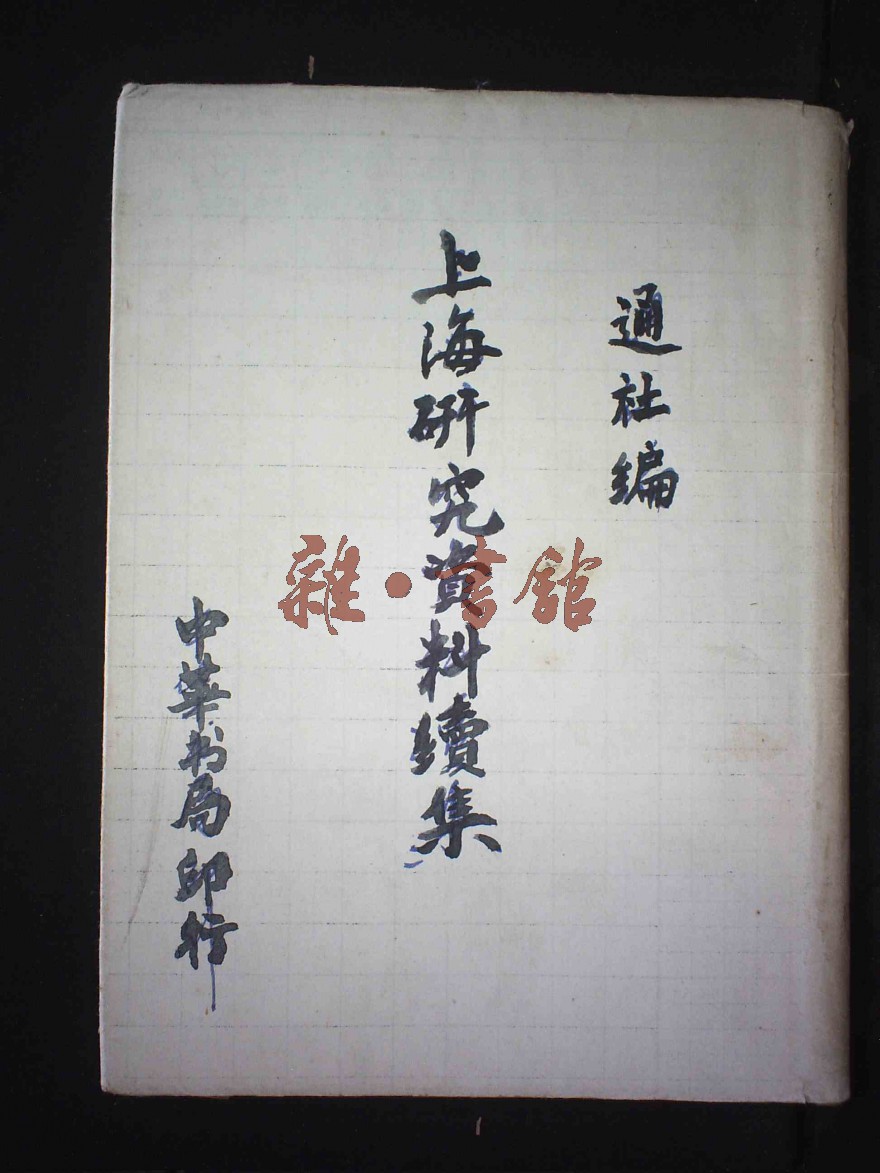 通社编
上海研究資料續集
中華书局印行
雜·書館